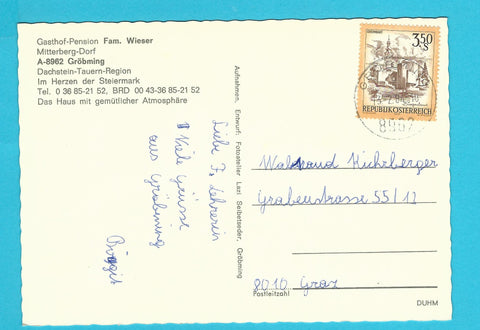 Gasthof-Pension Fam. Wieser
Mitterberg-Dorf
A-8962 Gröbming
Dachstein-Tauern-Region
Im Herzen der Steiermark
Tel. 0 36 85-21 52, BRD 00 43-36 85-21 52
Das Haus mit gemütlicher Atmosphäre
Liebe F. Lehrerin
Viele Grüsse
aus Gröbming
Birgit
Aufnahmen, Entwurf: Fotoatelier Lazi Seibetseder, Gröbming
3.50
S
REPUBLIK ÖSTERREICH
8962
Waltraud
Grabenstrasse 55/12
8010 Graz
Postleitzahl
DUHM